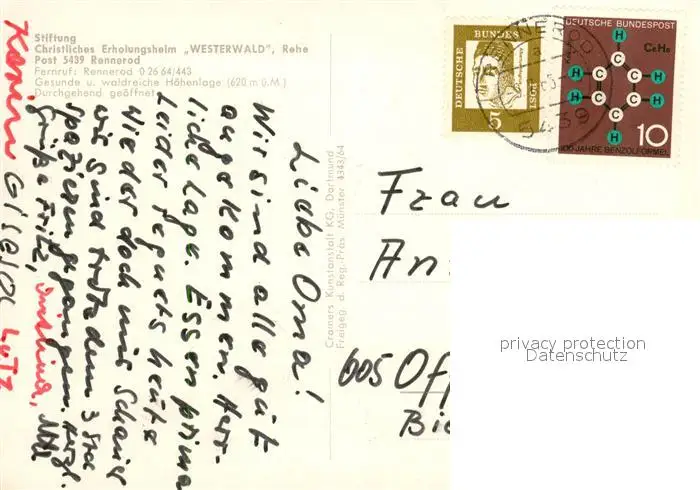 Stiftung
Christliches Erholungsheim „WESTERWALD", Rehe
Post 5439 Rennerod
Fernruf: Rennerod 0 26 64/443
Gesunde u. waldreiche Höhenlage (620 m ü.M.)
Durchgehend geöffnet
Liebe Oma!
Wir sind alle gut
angekommen. Herr-
liche Lage. Essen prima
Leider regnets heute
wieder doch mit Schauer
wir sind trotzdem 3 Std
spazieren gegangen. Herzl.
Grüße Fritz,
Karin Gisela Lutz
Cramers Kunstanstalt KG, Dortmund
Freigeg. d. Reg.-Präs. Münster 4343/64
DEUTSCHE BUNDESPOST
5
5439
DEUTSCHE BUNDESPOST
C6H6
H
H C C H
H C C H
C
H
10
100 JAHRE BENZOLFORMEL
Frau
An
605 Off
Bie
privacy protection
Datenschutz